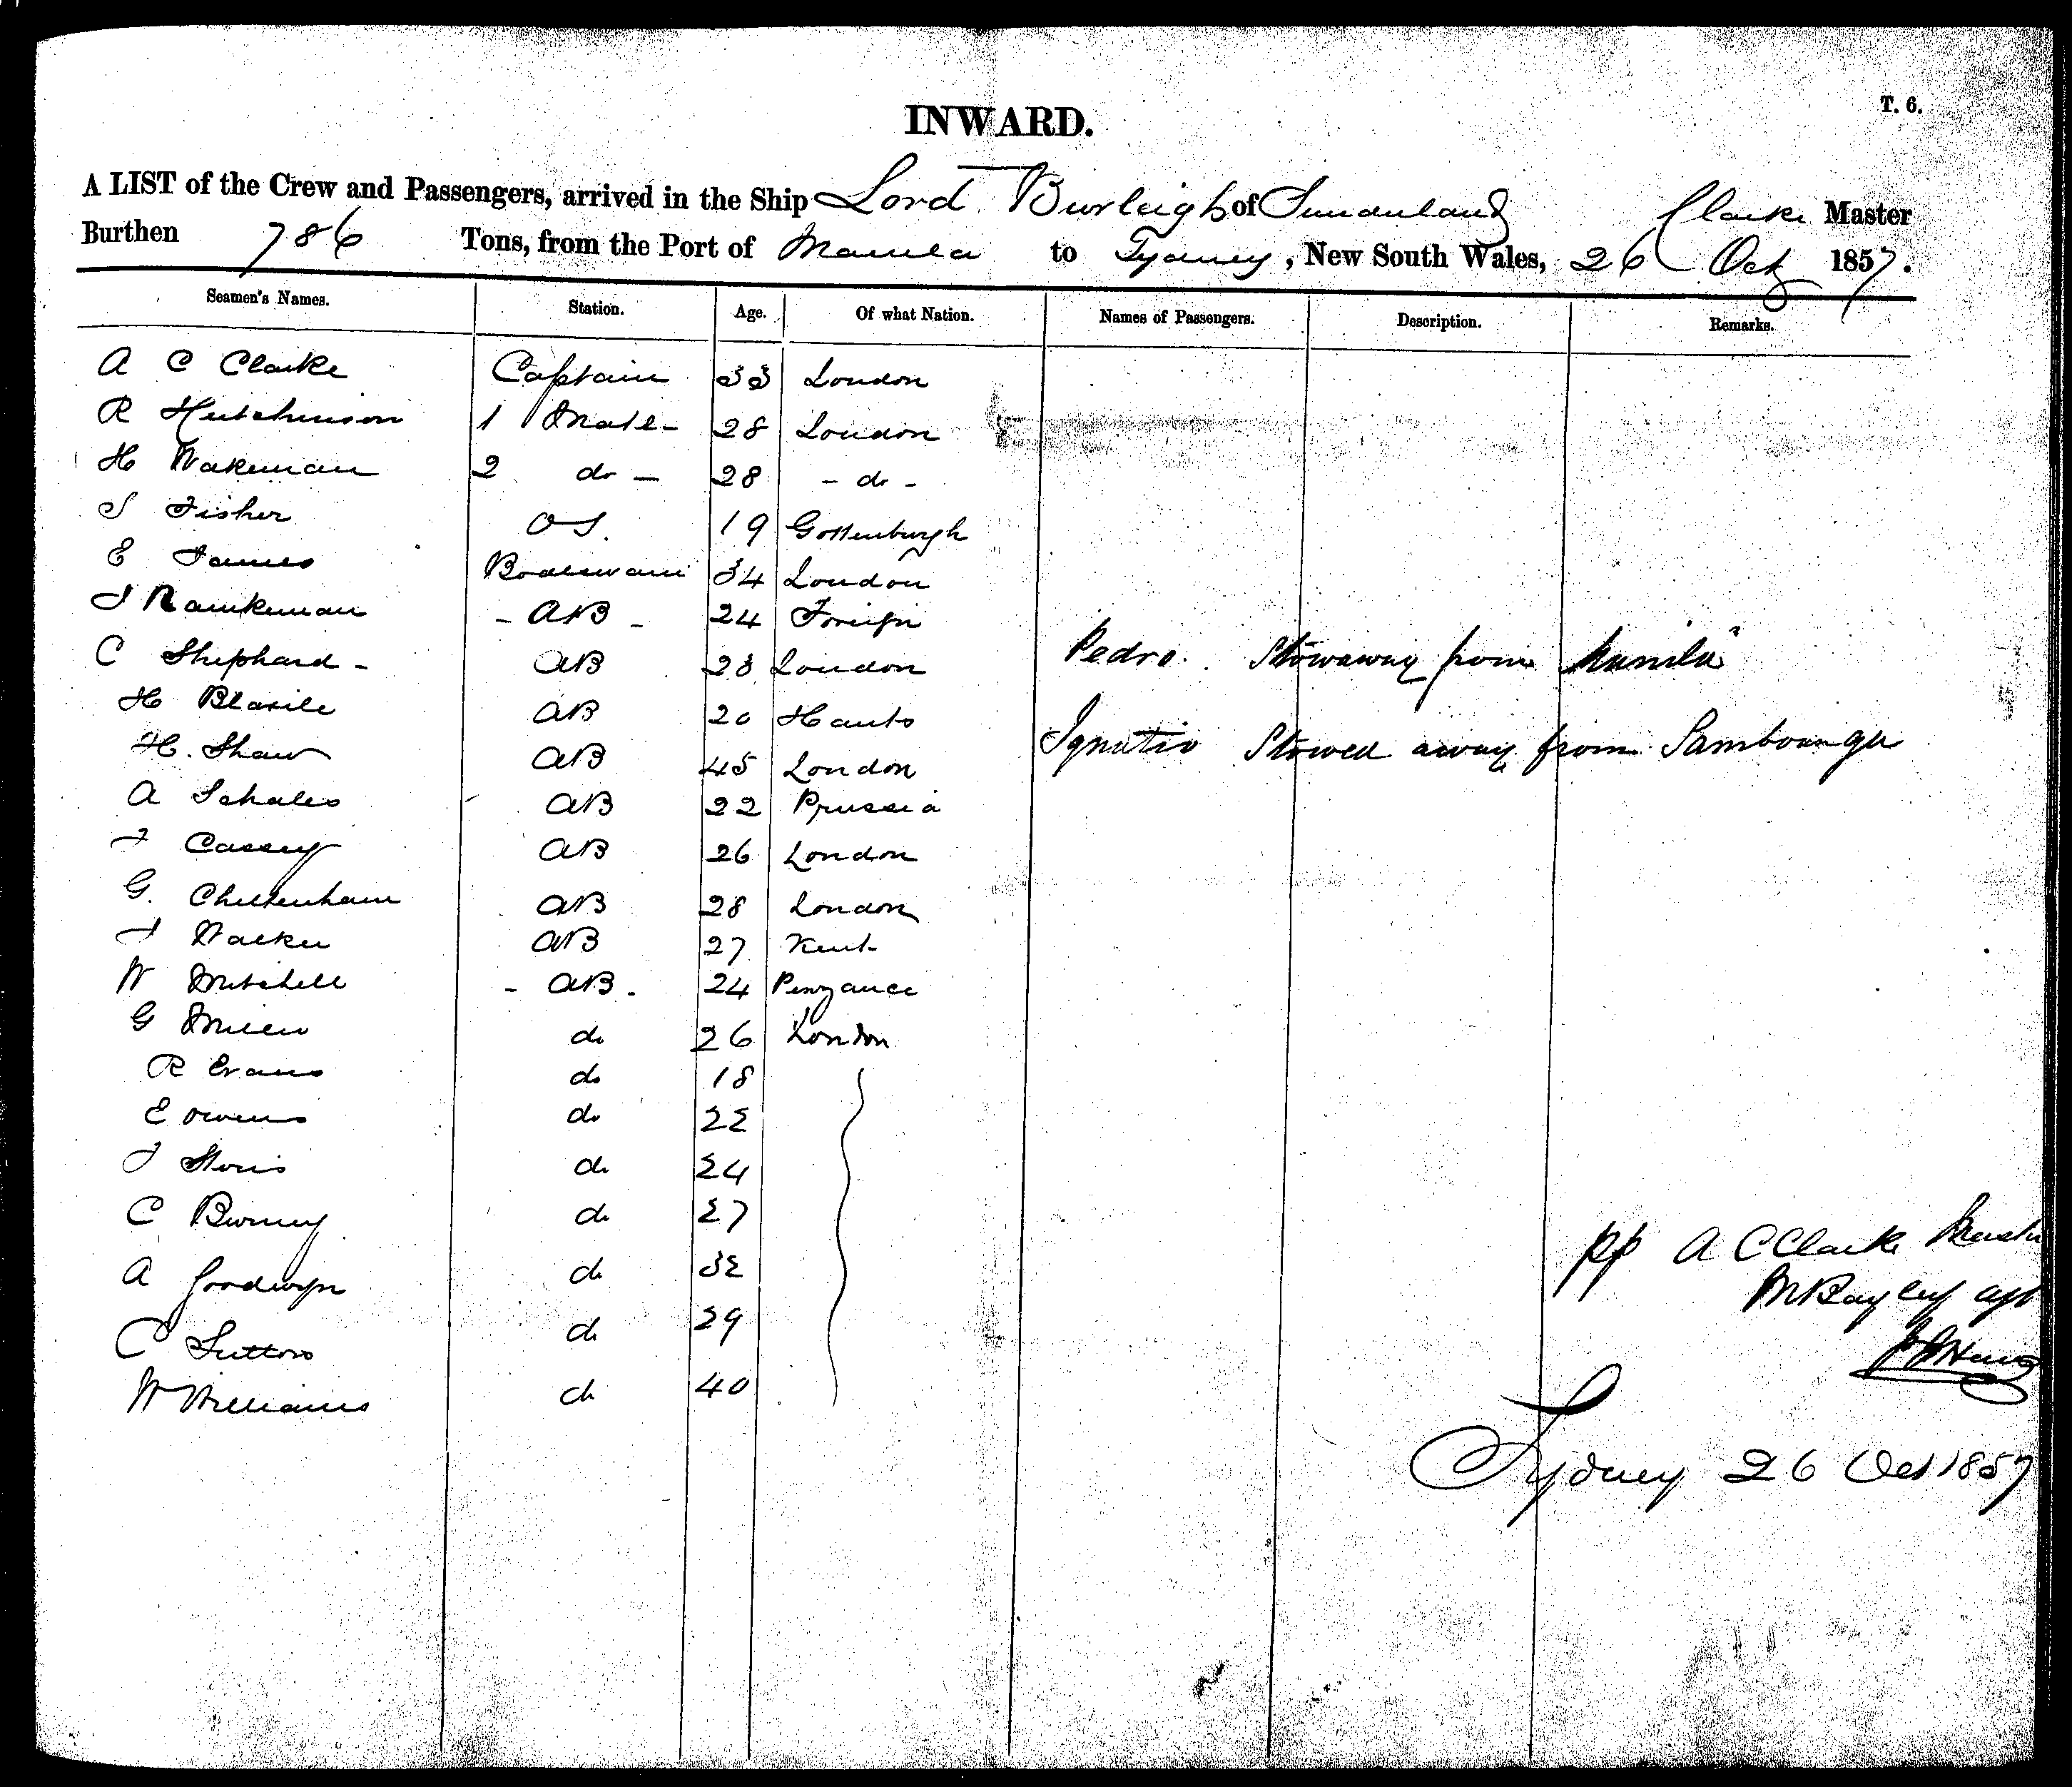 T. 6.
INWARD.
A LIST of the Crew and Passengers, arrived in the Ship Lord Burleigh of Sunderland Clarke Master
Burthen 786 Tons, from the Port of Manila to Sydney, New South Wales, 26 Oct 1857.
Seamen's Names. Station. Age. Of what Nation. Names of Passengers. Description. Remarks.
A C Clarke Captain 33 London
R Hutchinson 1 Mate - 28 London
H Wakeman 2 do - 28 - do -
S Fisher OS. 19 Gottenburgh
E James 34 London
J - AB - 24 Foreign
C Shephard - AB 28 London Pedro. Stowaway from Manila
H AB 20 Hants
H. Shaw AB 45 London Ignatio Stowed away from Samboanga
A Schales AB 22 Prussia
J Cassey AB 26 London
G. Cheltenham AB 28 London
J AB 27 Kent
W Mitchell - AB - 24 Penzance
G do 26 London
R Evans do 18
E Owens do 22
J do 24
C do 27
A Goodwyn do 32
C Sutton do 29
W Williams do 40
pp A C Clarke
Bayley agt
Sydney 26 Oct 1857